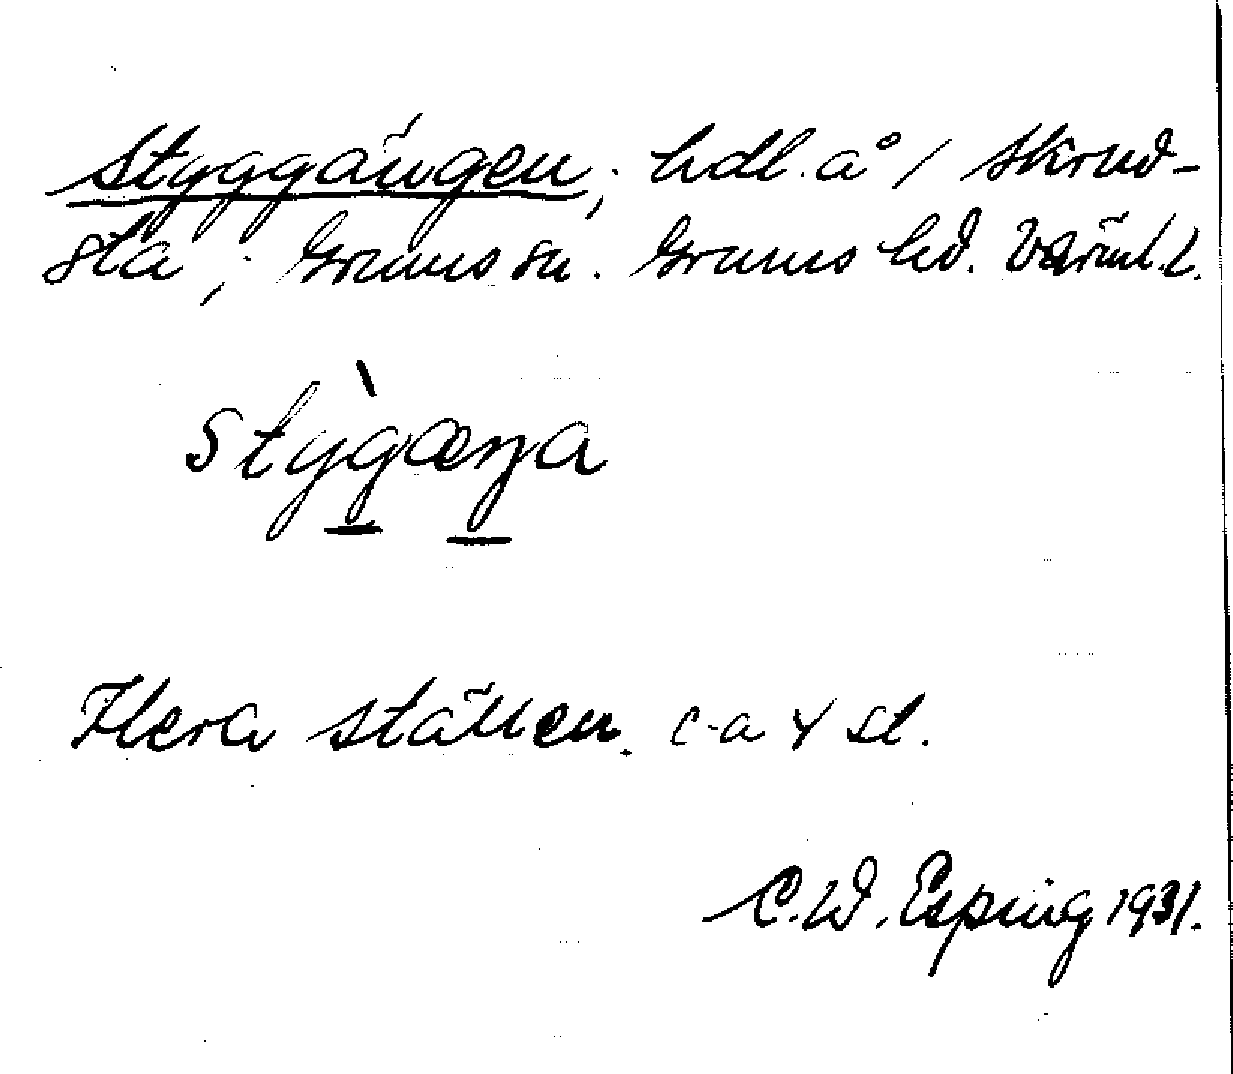 Styggängen, hdl. å 1 Skrud-
sta, Grums sn. Grums hd. Värml. l.
stỳgæŋa
Flera ställen. c-a 4 st.
C.W. Esping 1931.